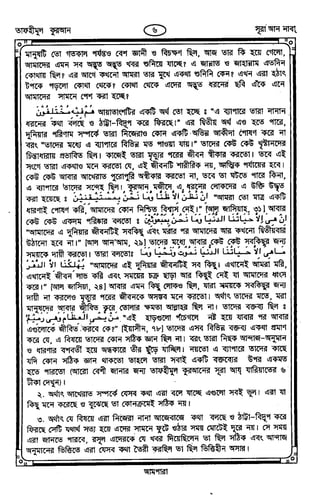 তাফহীমুল কুরআন ৬ সূরা আন নাবা
মানুষটি তো গতকাল পর্যন্তও বেশ জ্ঞানী ও বিচক্ষণ ছিল, আজ তার কি হয়ে গেলো,
আমাদের এমন সব অদ্ভুত অদ্ভুত খবর শুনিয়ে যাচ্ছে? এ জান্নাত ও জাহান্নাম এতদিন
কোথায় ছিল? এর আগে কখনো আমরা তার মুখে একথা শুনিনি কেন? এখন এরা হঠাৎ
টপকে পড়লো কোথা থেকে? কোথা থেকে এদের অদ্ভুত ধরনের ছবি এঁকে এনে
আমাদের সামনে পেশ করা হচ্ছে?
আয়াতাংশটির একটি অর্থ তো হচ্ছে : "এ ব্যাপারে তারা নানান
ধরনের কথা বলছে ও ঠাট্টা-বিদ্রূপ করে ফিরছে।" এর দ্বিতীয় অর্থ এও হতে পারে,
দুনিয়ার পরিণাম সম্পর্কে তারা নিজেরাও কোন একটি অভিন্ন আকীদা পোষণ করে না
বরং "তাদের মধ্যে এ ব্যাপারে বিভিন্ন মত পাওয়া যায়।" তাদের কেউ কেউ খৃস্টানদের
চিন্তাধারায় প্রভাবিত ছিল। কাজেই তারা মৃত্যুর পরের জীবন স্বীকার করতো। তবে এই
সংগে তারা একথাও মনে করতো যে, এই জীবনটি শারীরিক নয়, আত্মিক পর্যায়ের হবে।
কেউ কেউ আবার আখেরাত পুরোপুরি অস্বীকার করতো না, তবে তা ঘটতে পারে কিনা,
এ ব্যাপারে তাদের সন্দেহ ছিল। কুরআন মজীদে এ ধরনের লোকদের এ উক্তি উদ্ধৃত
করা হয়েছে : إِنْ نَظُنُّ إِلَّا ظَنًّا وَمَا نَحْنُ بِمُسْتَيْقِنِينَ "আমরা তো মাত্র একটি
ধারণাই পোষণ করি, আমাদের কোন নিশ্চিত বিশ্বাস নেই।" (আল জাসিয়াহ, ৩২) আবার
কেউ কেউ একদম পরিষ্কার বলতো :
"আমাদের এ দুনিয়ার জীবনটিই সবকিছু এবং মরার পর আমাদের আর কখনো দ্বিতীয়বার
উঠানো হবে না।" (আল আন'আম, ২৯) তাদের মধ্যে আবার কেউ কেউ সবকিছুর জন্য
সময়কে দায়ী করতো। তারা বলতো :
"আমাদের এই দুনিয়ার জীবনটিই সব কিছু। এখানেই আমরা মরি,
এখানেই জীবন লাভ করি এবং সময়ের চক্র ছাড়া আর কিছুই নেই যা আমাদের ধ্বংস
করে।" (আল জাসিয়া, ২৪) আবার এমন কিছু লোকও ছিল, যারা সময়কে সবকিছুর জন্য
দায়ী না করলেও মৃত্যুর পরের জীবনকে অসম্ভব মনে করতো। অর্থাৎ তাদের মতে, মরা
মানুষদের আবার জীবিত করে তোলার ক্ষমতা আল্লাহর ছিল না। তাদের বক্তব্য ছিল :
مَنْ يُحْيِي الْعِظَامَ وَهِيَ رَمِيمٌ "এই হাড়গুলো পচেগলে নষ্ট হয়ে যাবার পর আবার
এগুলোকে জীবিত করবে কে?" (ইয়াসীন, ৭৮) তাদের এসব বিভিন্ন বক্তব্য একথা প্রমাণ
করে যে, এ বিষয়ে তাদের কোন সঠিক জ্ঞান ছিল না। বরং তারা নিছক আন্দাজ-অনুমান
ও ধারণার বশবর্তী হয়ে অন্ধকারে তীর ছুঁড়ে যাচ্ছিল। নয়তো এ ব্যাপারে তাদের কাছে
যদি কোন সঠিক জ্ঞান থাকতো তাহলে তারা সবাই একটি বক্তব্যের উপর একমত
হতে পারতো (আরো বেশী জানার জন্য তাফহীমুল কুরআনের সূরা আয্ যারিয়াতের ৬
টীকা দেখুন)।
২. অর্থাৎ আখেরাত সম্পর্কে যেসব কথা এরা বলে যাচ্ছে এগুলো সবই ভুল। এরা যা
কিছু মনে করেছে ও বুঝেছে তা কোনক্রমেই সঠিক নয়।
৩. অর্থাৎ যে বিষয়ে এরা নিজেরা নানা আজেবাজে কথা বলছে ও ঠাট্টা-বিদ্রূপ করে
ফিরছে সেটি যথার্থ সত্য হয়ে এদের সামনে ফুটে ওঠার সময় মোটেই দূরে নয়। সে সময়
এরা জানতে পারবে, রসূল এদেরকে যে খবর দিয়েছিলেন তা ছিল সঠিক এবং আন্দাজ
অনুমানের ভিত্তিতে এরা যেসব কথা তৈরী করছিল তা ছিল ভিত্তিহীন অসার।
আমপারা